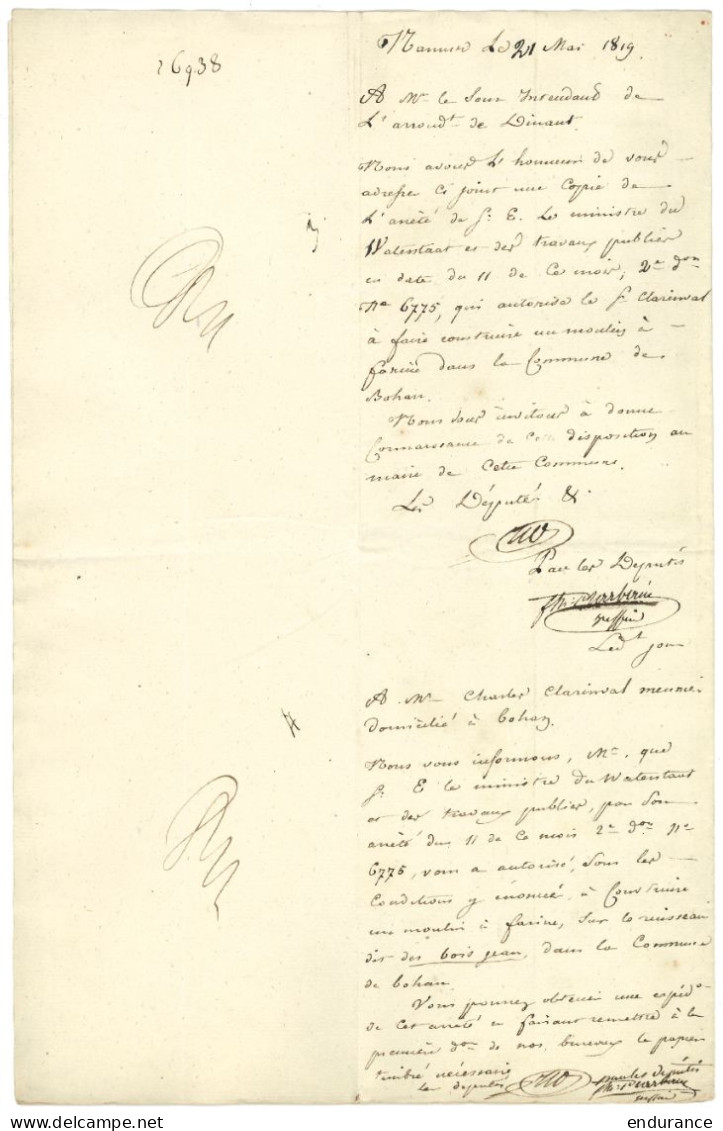 26938
Namur Le 21 Mai 1819
A Mr le Sous Intendant de
L'arrondt de Dinant.
Nous avons L'honneur de vous
adresser Ci joint une Copie de
L'arrêté de S. E. Le ministre du
Waterstaat et des travaux publics
en date du 11 de Ce mois, 2e don
No 6775, qui autorise le Sr Clarinval
à faire construire un moulin à
farine dans la Commune de
Bohan.
Nous vous invitons à donner
Connaissance de cette disposition au
maire de Cette Commune.
Les Députés &.
Par les Députés
greffier
Ledt jour
A Mr Charles Clarinval meunier
domicilié à bohan.
Nous vous informons, Mr, que
S. E le ministre du Waterstaat
et des travaux publics, par Son
arrêté du 11 de Ce mois 2e don No
6775, vous a autorisé, Sous les
Conditions y énoncées, à Construire
un moulin à farine, Sur le ruisseau
dit des bois jean, dans la Commune
de bohan.
Vous pourrez obtenir une expédon
de Cet arrêté en faisant remettre à la
première don de nos bureaux le papier
timbré nécessaire
les députés
par les députés
greffier
endurance